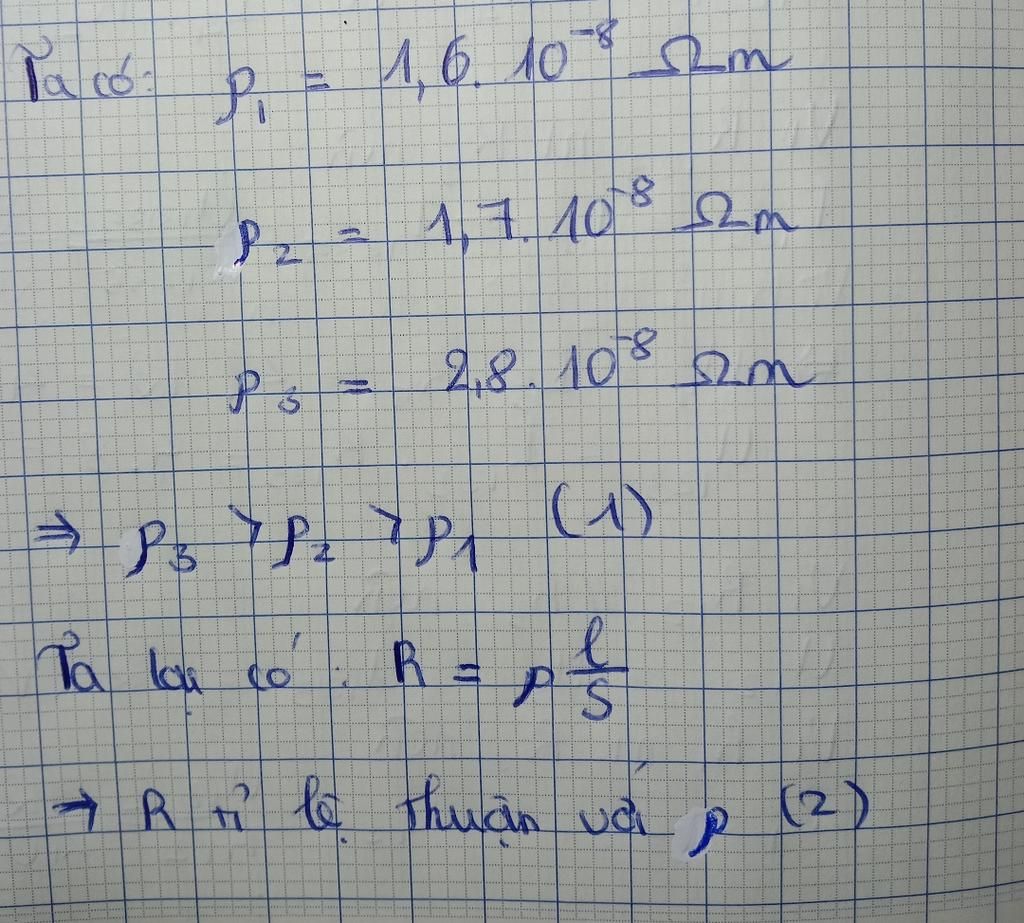 Ta có: ρ₁ = 1,6. 10⁻⁸ Ωm
ρ₂ = 1,7. 10⁻⁸ Ωm
ρ₃ = 2,8. 10⁻⁸ Ωm
⇒ ρ₃ > ρ₂ > ρ₁ (1)
Ta lại có : R = ρ l/S
→ R tỉ lệ thuận với ρ (2)